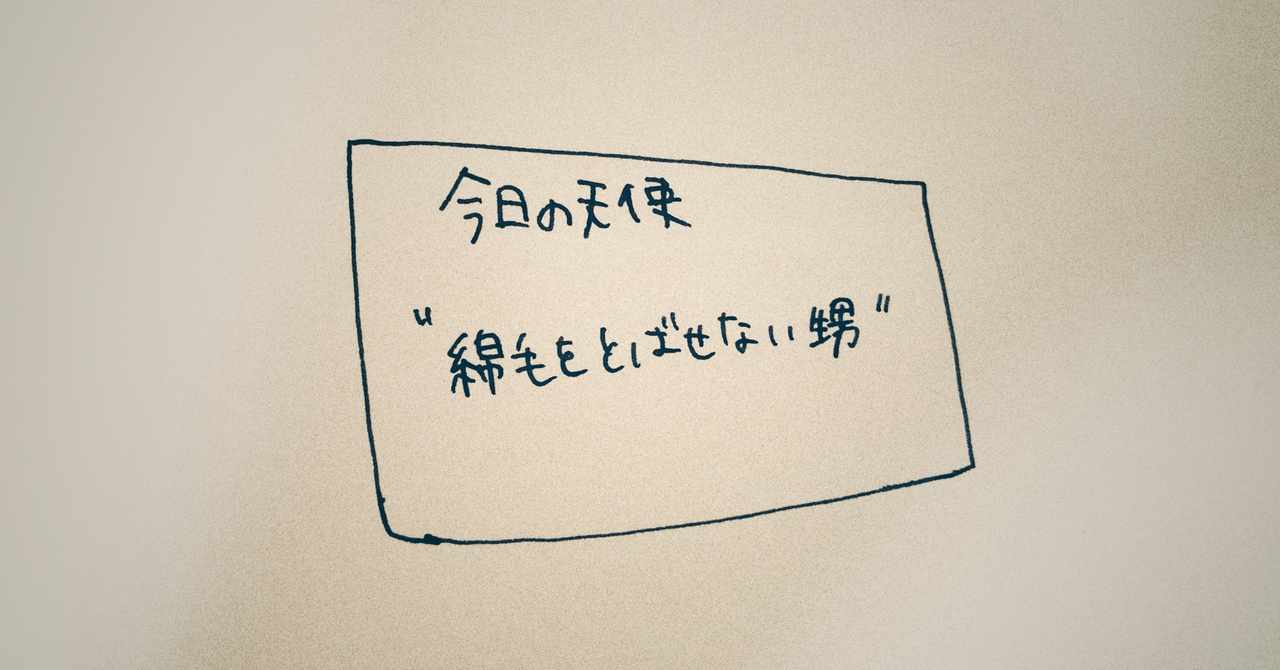 今日の天使
"綿毛をとばせない甥"